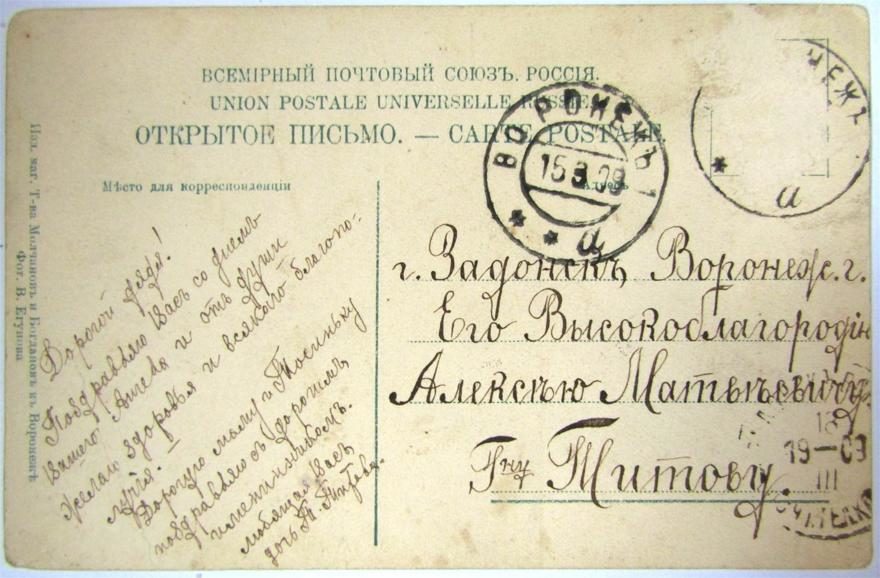 ВСЕМІРНЫЙ ПОЧТОВЫЙ СОЮЗЪ. РОССІЯ.
UNION POSTALE UNIVERSELLE RUSSIE.
ОТКРЫТОЕ ПИСЬМО. — CARTE POSTALE.
Мѣсто для корреспонденціи
Адресъ
ВОРОНЕЖЪ 1
15.3.09
а
НЕЖЪ
а
Дорогой дядя!
Поздравляю Васъ со днемъ
Вашего Ангела и отъ души
желаю здоровья и всякаго благопо-
лучія.
Дорогую маму и Тосиньку
поздравляю съ дорогимъ
имениникомъ.
любящая Васъ
дочь Т. Титова.
г. Задонскъ, Воронеж. г.
Его Высокоблагородію
Алексѣю Матвѣевичу
Гну Титову.
19—09
III
Изд. маг. Т-ва Молчановъ и Богдановъ въ Воронежѣ
Фот. В. Егупова